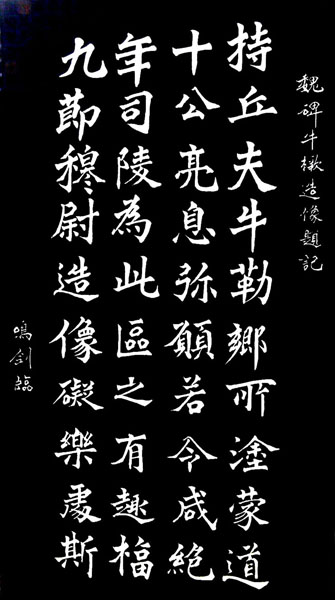 魏碑牛橛造像題記
持丘夫牛勒鄉所塗蒙道
十公亮息弥願若令咸絕
年司陵為此區之有趣福
九節穆尉造像礙樂處斯
鳴劍臨